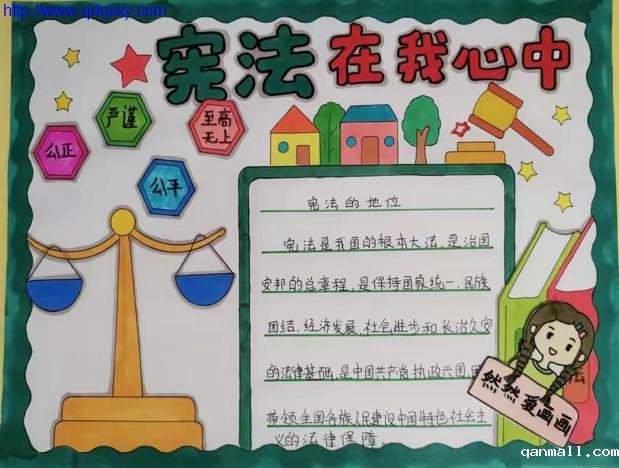 http://www.qdqsxy.com
宪法在我心中
严谨
至高
无上
公正
公平
宪法的地位
宪法是我国的根本大法,是治国
安邦的总章程,是保持国家统一、民族
团结、经济发展、社会进步和长治久安
的法律基础,是中国共产党执政兴国、
带领全国各族人民建设中国特色社会主
义的法律保障。
法
然然爱画画
qanmall.com